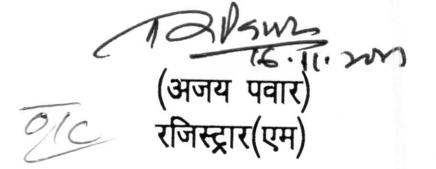 16.11.
(अजय पवार)
O/C रजिस्ट्रार(एम)